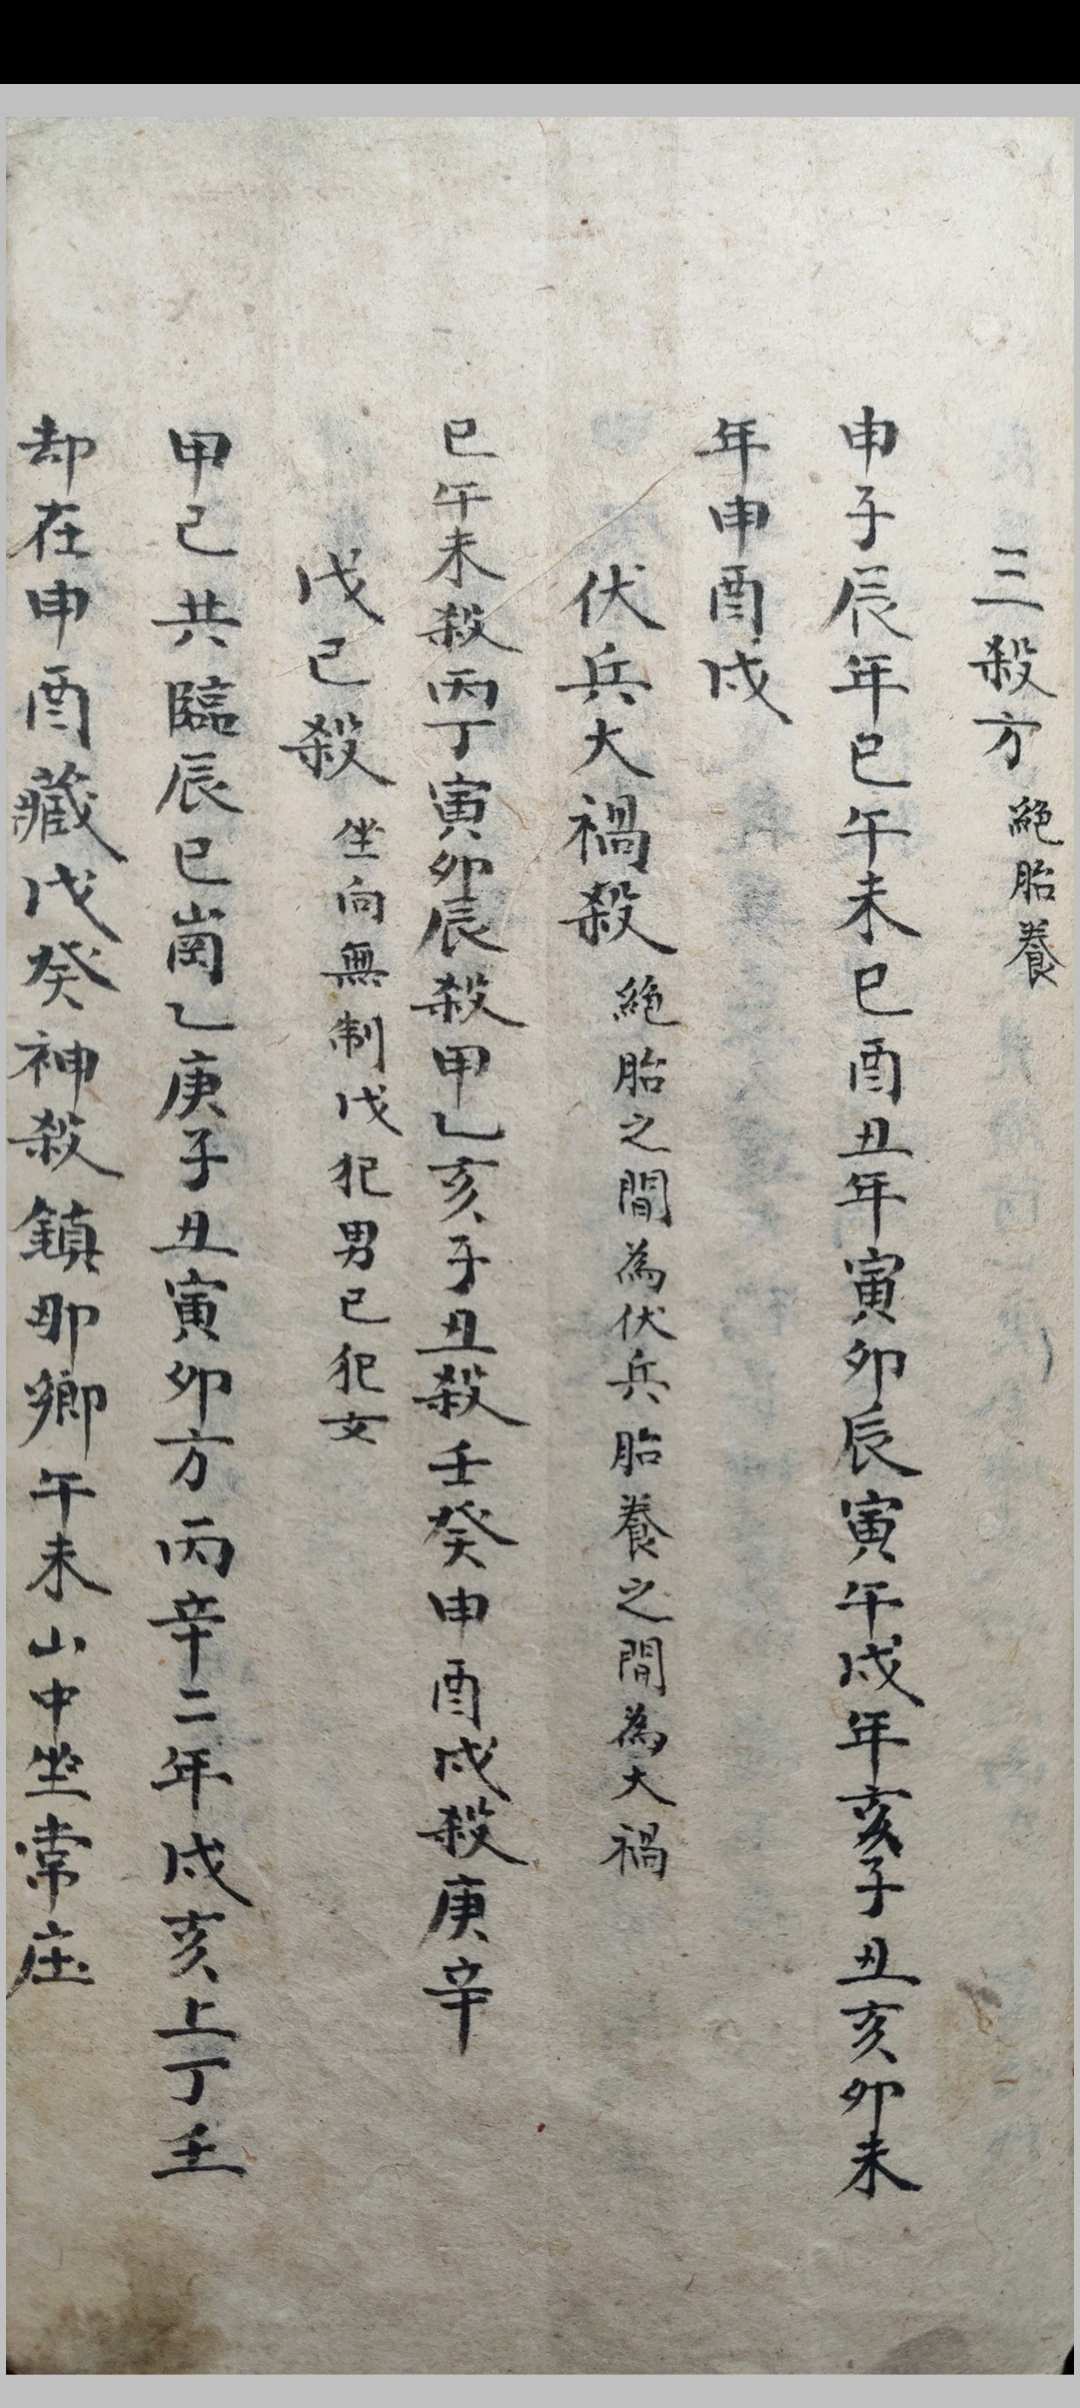 三殺方 絕胎養
申子辰年巳午未巳酉丑年寅卯辰寅午戌年亥子丑亥卯未
年申酉戌
伏兵大禍殺 絕胎之間為伏兵胎養之間為大禍
巳午未殺丙丁寅卯辰殺甲乙亥子丑殺壬癸申酉戌殺庚辛
戊己殺 坐向無制戊犯男己犯女
甲己共臨辰巳崗乙庚子丑寅卯方丙辛二年戌亥上丁壬
却在申酉藏戊癸神殺鎮耶鄉午未山中坐常庄